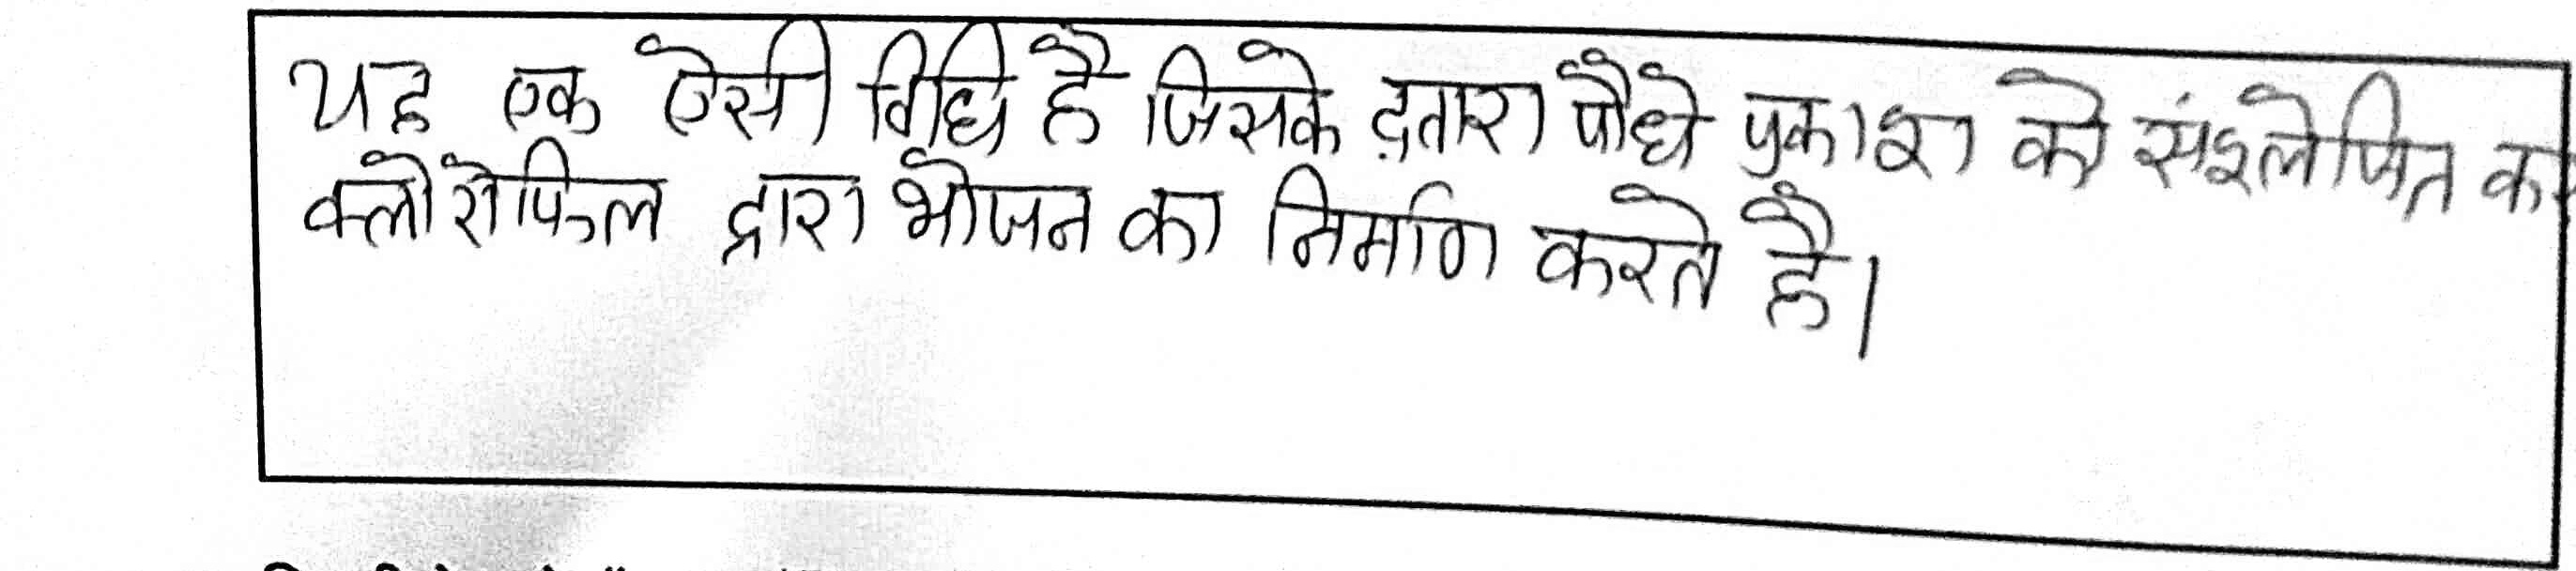 यह एक ऐसी विधि है जिसके द्वारा पौधे प्रकाश को संश्लेषित कर
क्लोरोफिल द्वारा भोजन का निर्माण करते है।